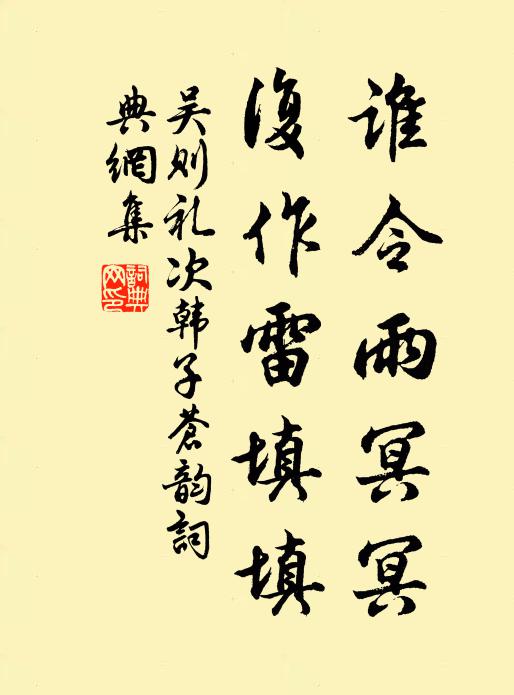 谁令雨冥冥
復作雷填填
吴则礼次韩子苍韵詞
典網集
詞典網印